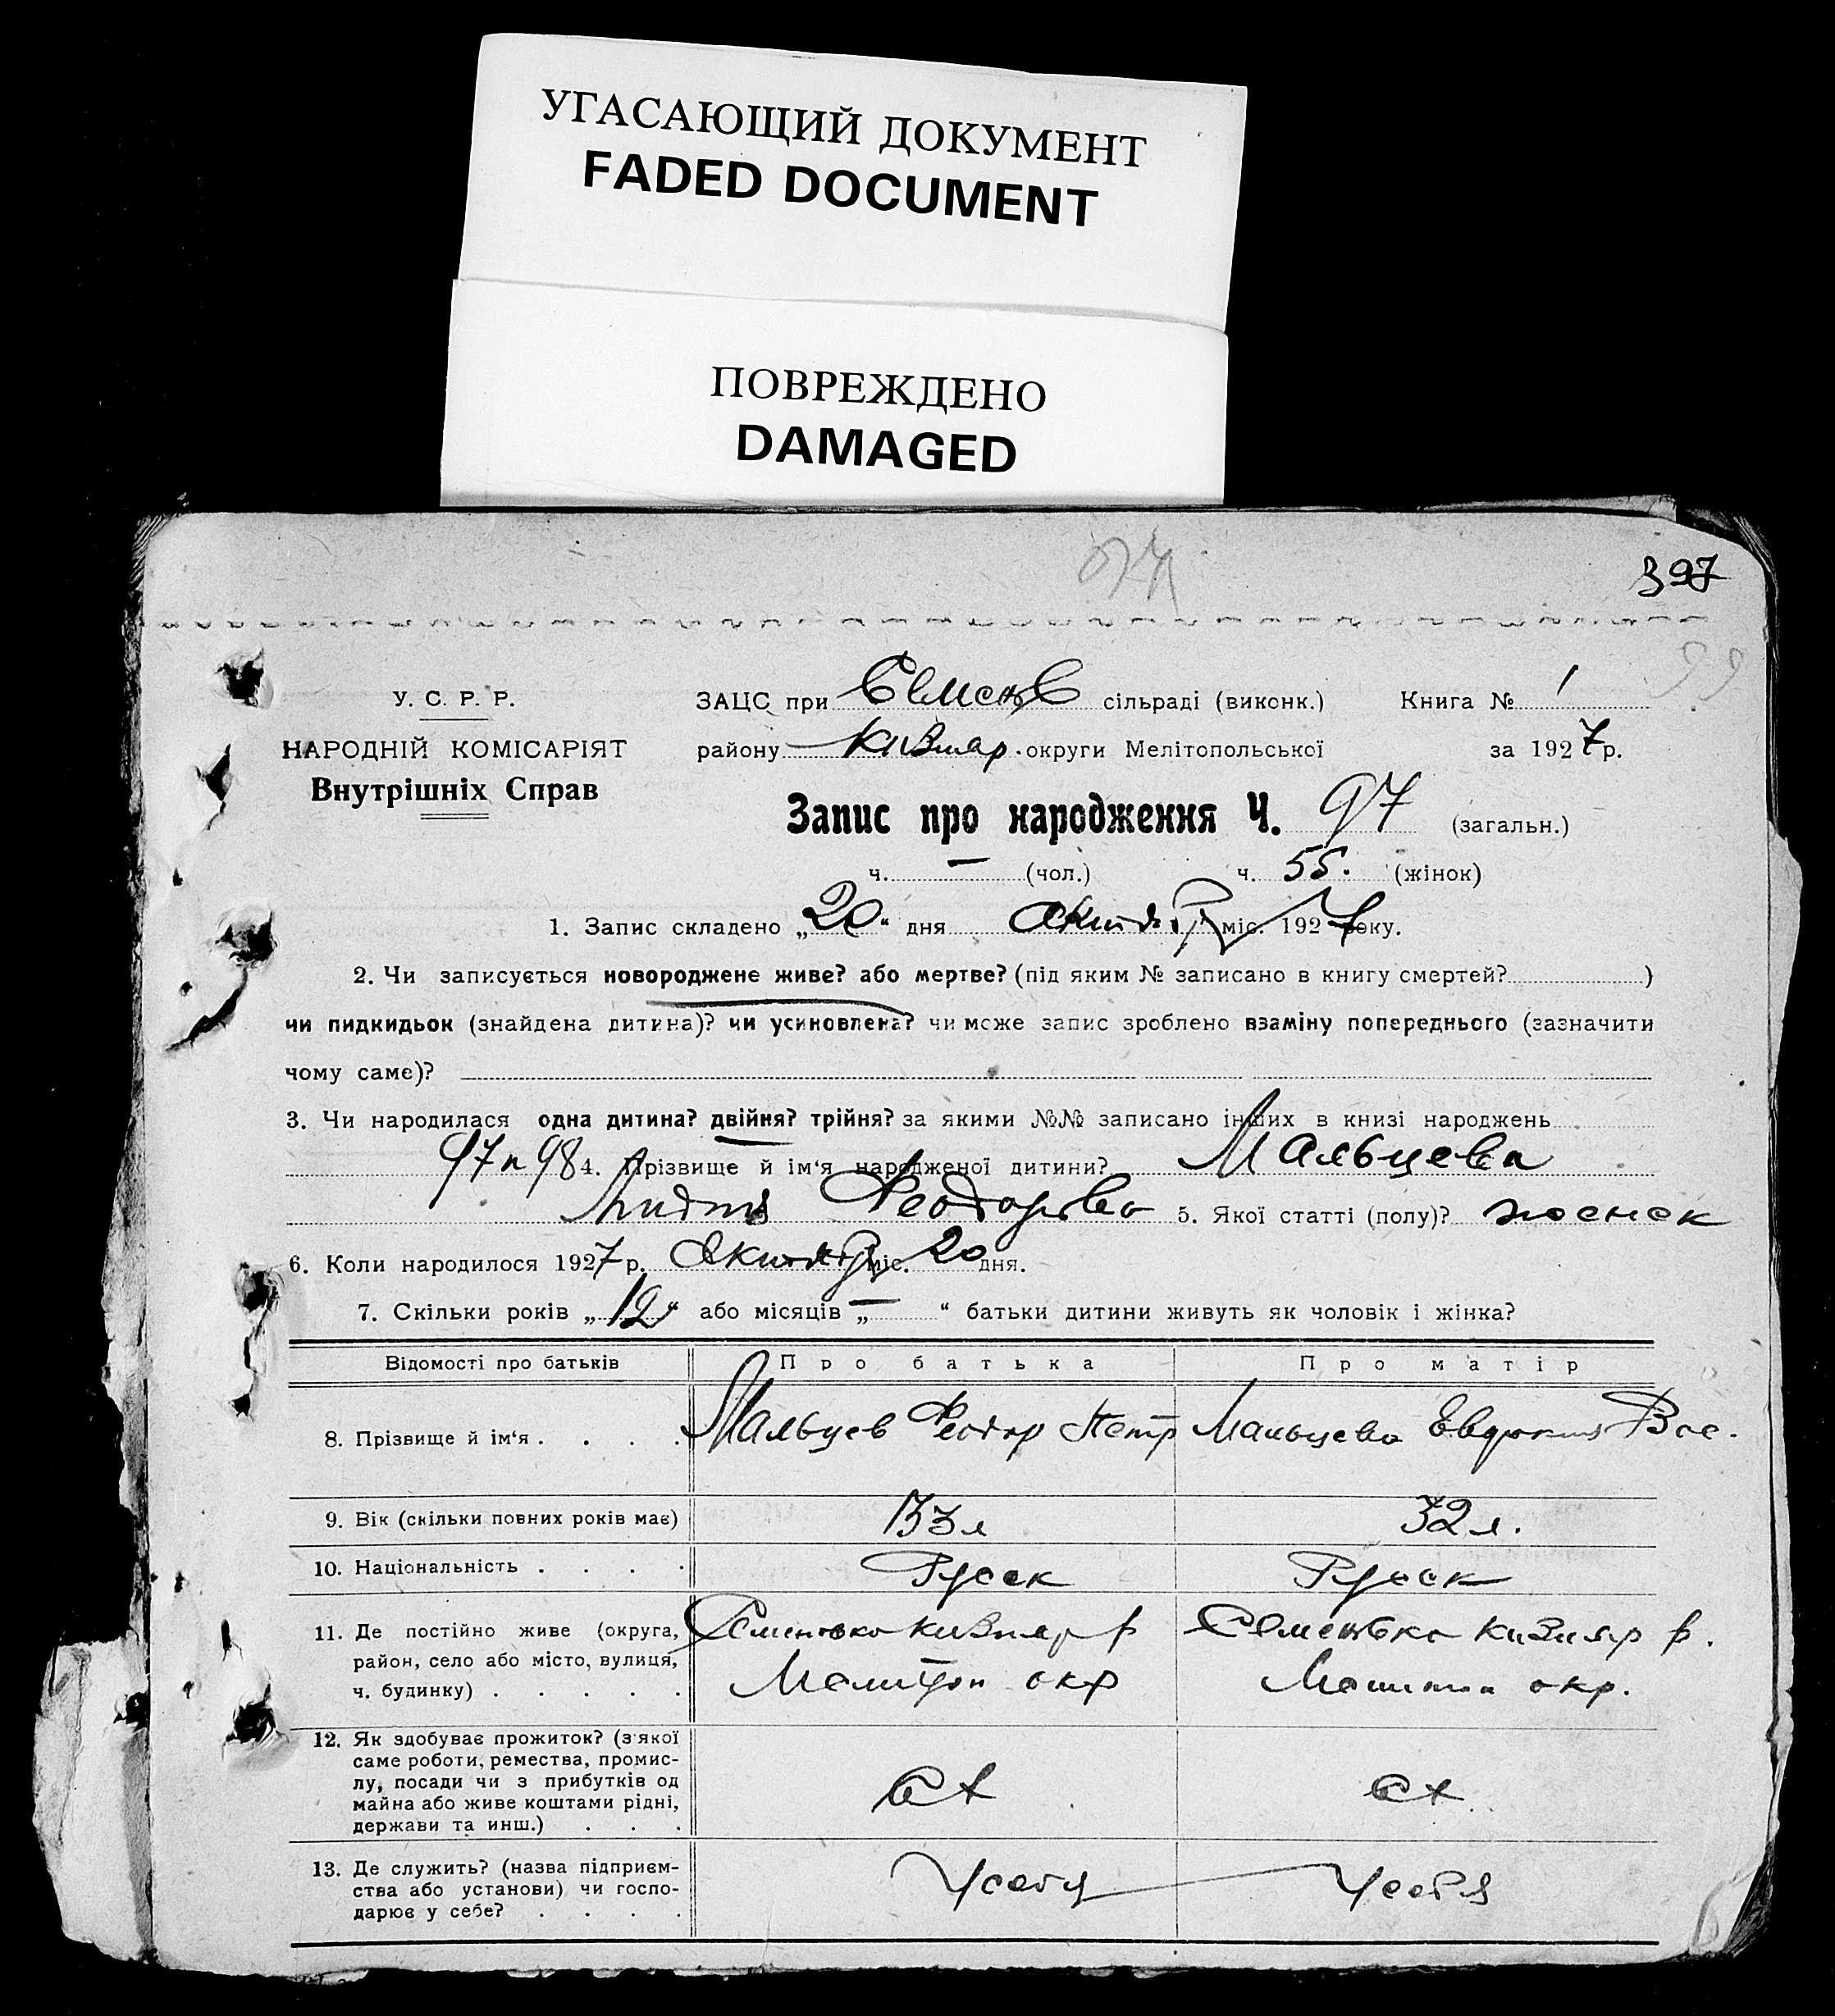 УГАСАЮЩИЙ ДОКУМЕНТ
FADED DOCUMENT
ПОВРЕЖДЕНО
DAMAGED
397
99
У. С. Р. Р.
НАРОДНІЙ КОМІСАРІЯТ
Внутрішніх Справ
ЗАЦС при Семен сільраді (виконк.) Книга № 1
району Кизияр. округи Мелітопольської за 1927 р.
Запис про народження Ч. 97 (загальн.)
ч. — (чол.) ч. 55. (жінок)
1. Запис складено „20“ дня октября міс. 1927 року.
2. Чи записується новороджене живе? або мертве? (під яким № записано в книгу смертей? )
чи пидкидьок (знайдена дитина)? чи усиновлена? чи може запис зроблено взаміну попереднього (зазначити
чому саме)?
3. Чи народилася одна дитина? двійня? трійня? за якими №№ записано інших в книзі народжень
97 и 98 4. Прізвище й ім‘я народженої дитини? Мальцева
Лидия Феодоровна 5. Якої статті (полу)? женск
6. Коли народилося 1927 р. октября міс. 20 дня.
7. Скільки років „12“ або місяців „—“ батьки дитини живуть як чоловік і жінка?
Відомості про батьків Про батька Про матір
8. Прізвище й ім‘я . . . . Мальцев Феодор Петр Мальцева Евдокия Вас.
9. Вік (скільки повних років має) 33 л 32 л.
10. Національність . . . . Руськ Руськ
11. Де постійно живе (округа, Семеновка Кизияр р Семеновка Кизияр р.
район, село або місто, вулиця, Мелитоп окр Мелитоп окр.
ч. будинку) . . . . .
12. Як здобуває прожиток? (з'якої
саме роботи, ремества, промис-
лу, посади чи з прибутків од
майна або живе коштами рідні,
держави та инш.) . . .
13. Де служить? (назва підприєм- У себя У себя
ства або установи) чи госпо-
дарює у себе? . . . .